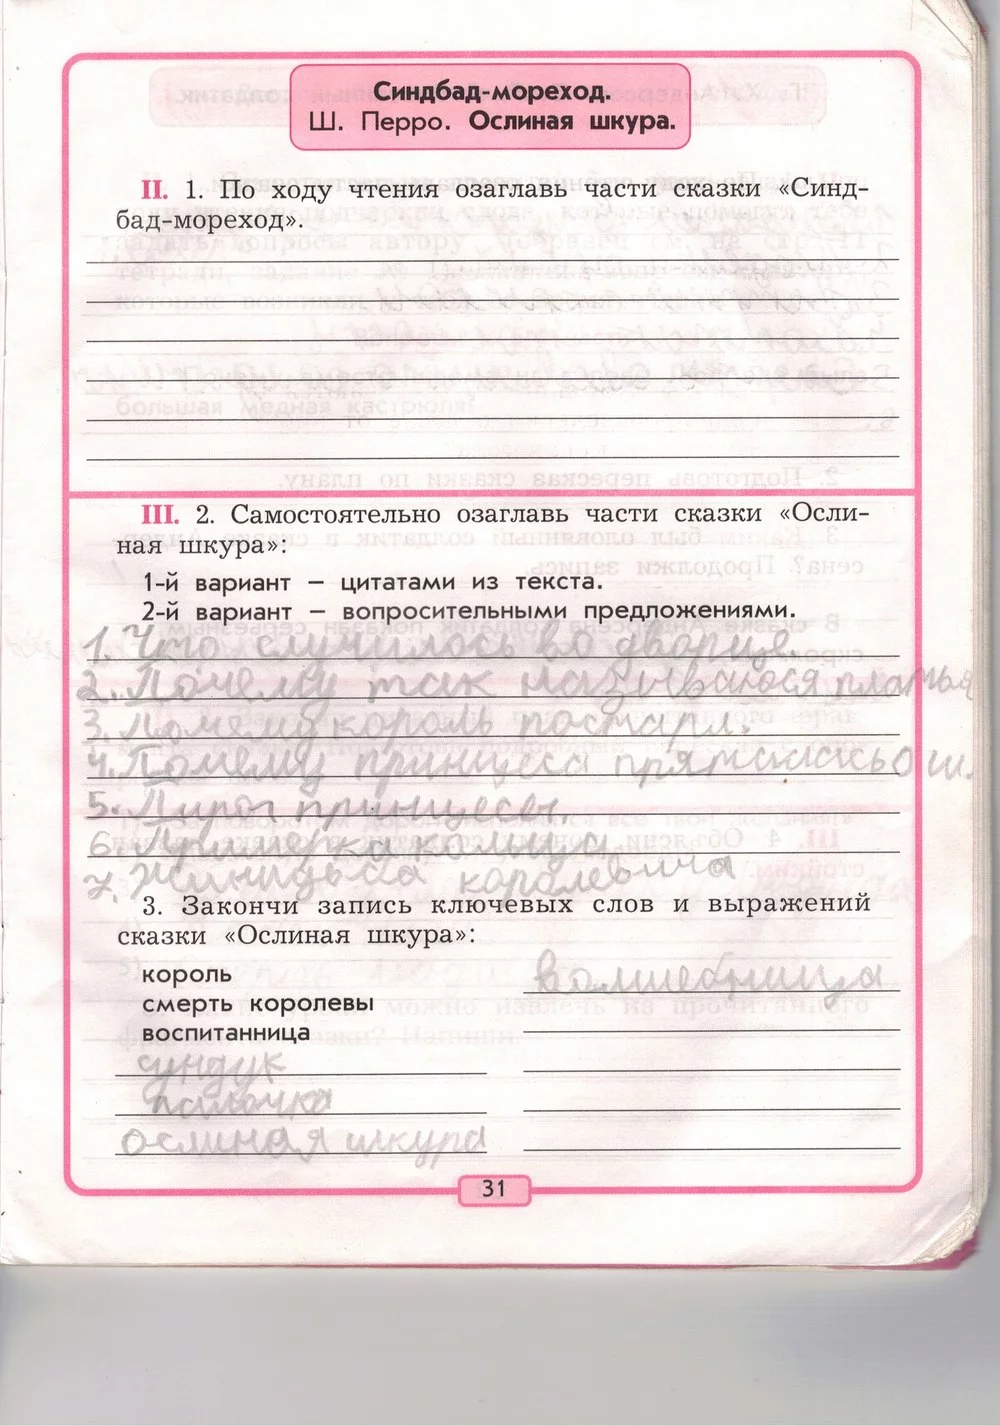 Синдбад-мореход.
Ш. Перро. Ослиная шкура.
II. 1. По ходу чтения озаглавь части сказки «Синд-
бад-мореход».
III. 2. Самостоятельно озаглавь части сказки «Осли-
ная шкура»:
1-й вариант – цитатами из текста.
2-й вариант – вопросительными предложениями.
1. Что случилось во дворце.
2. Почему так называюся платья
3. Почему король постарл.
4. Почему принцеса пряталась о ш.
5. Пиры принцесы
6. Примерка кольца.
7. Жинидьба королевича
3. Закончи запись ключевых слов и выражений
сказки «Ослиная шкура»:
король
волшебница
смерть королевы
воспитанница
сундук
палочка
ослиная шкура
31